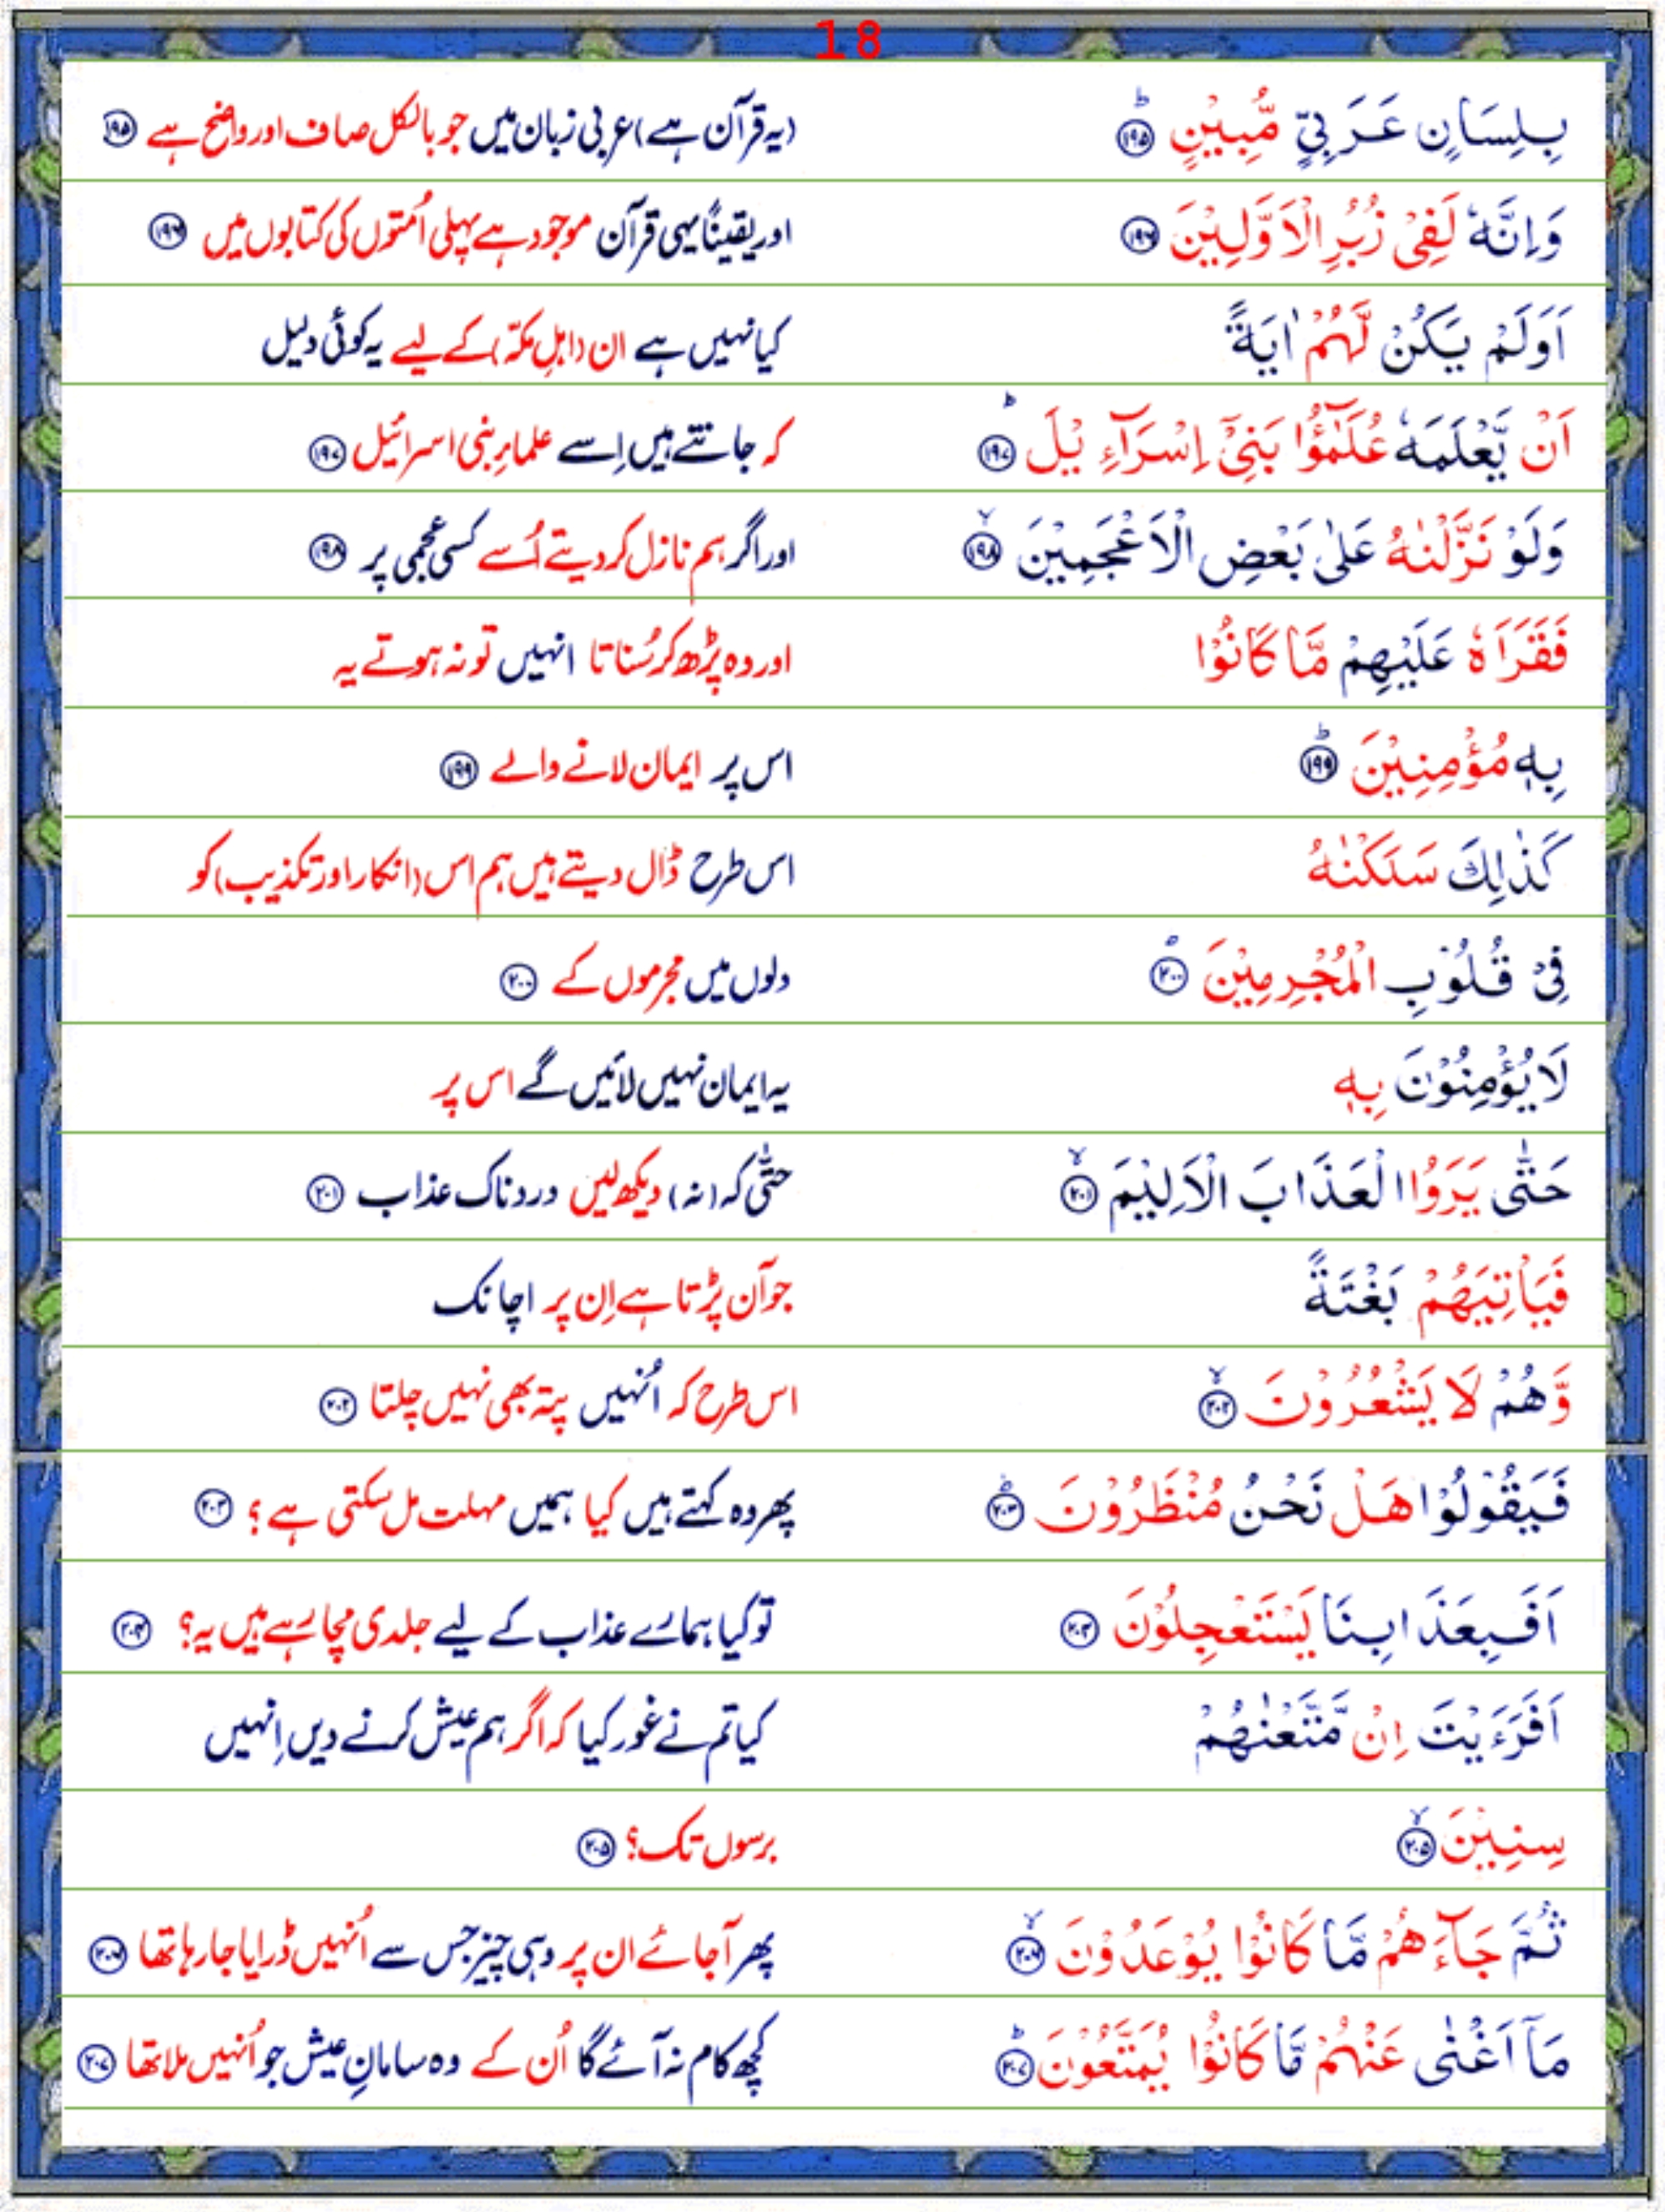 18
بِلِسَانٍ عَرَبِيٍّ مُّبِيْنٍ ؕ ۱۹۵ (یہ قرآن ہے) عربی زبان میں جو بالکل صاف اور واضح ہے ۱۹۵
وَاِنَّهٗ لَفِىْ زُبُرِ الْاَوَّلِيْنَ ۱۹۶ اور یقیناً یہی قرآن موجود ہے پہلی اُمتوں کی کتابوں میں ۱۹۶
اَوَلَمْ يَكُنْ لَّهُمْ اٰيَةً کیا نہیں ہے ان (اہلِ مکّہ) کے لیے یہ کوئی دلیل
اَنْ يَّعْلَمَهٗ عُلَمٰٓؤُا بَنِىْٓ اِسْرَآءِيْلَ ؕ ۱۹۷ کہ جانتے ہیں اِسے علماءِ بنی اسرائیل ۱۹۷
وَلَوْ نَزَّلْنٰهُ عَلٰى بَعْضِ الْاَعْجَمِيْنَ ۙ ۱۹۸ اور اگر ہم نازل کر دیتے اُسے کسی عجمی پر ۱۹۸
فَقَرَاَهٗ عَلَيْهِمْ مَّا كَانُوْا اور وہ پڑھ کر سُناتا انہیں تو نہ ہوتے یہ
بِهٖ مُؤْمِنِيْنَ ؕ ۱۹۹ اس پر ایمان لانے والے ۱۹۹
كَذٰلِكَ سَلَكْنٰهُ اس طرح ڈال دیتے ہیں ہم اس (انکار اور تکذیب) کو
فِىْ قُلُوْبِ الْمُجْرِمِيْنَ ؕ ۲۰۰ دلوں میں مجرموں کے ۲۰۰
لَا يُؤْمِنُوْنَ بِهٖ یہ ایمان نہیں لائیں گے اس پر
حَتّٰى يَرَوُا الْعَذَابَ الْاَلِيْمَ ۙ ۲۰۱ حتّٰی کہ (نہ) دیکھ لیں دردناک عذاب ۲۰۱
فَيَاْتِيَهُمْ بَغْتَةً جو آن پڑتا ہے اِن پر اچانک
وَّهُمْ لَا يَشْعُرُوْنَ ۙ ۲۰۲ اس طرح کہ اُنہیں پتہ بھی نہیں چلتا ۲۰۲
فَيَقُوْلُوْا هَلْ نَحْنُ مُنْظَرُوْنَ ؕ ۲۰۳ پھر وہ کہتے ہیں کیا ہمیں مہلت مل سکتی ہے؟ ۲۰۳
اَفَبِعَذَابِنَا يَسْتَعْجِلُوْنَ ۲۰۴ تو کیا ہمارے عذاب کے لیے جلدی مچا رہے ہیں یہ؟ ۲۰۴
اَفَرَءَيْتَ اِنْ مَّتَّعْنٰهُمْ کیا تم نے غور کیا کہ اگر ہم عیش کرنے دیں اِنہیں
سِنِيْنَ ۙ ۲۰۵ برسوں تک؟ ۲۰۵
ثُمَّ جَآءَهُمْ مَّا كَانُوْا يُوْعَدُوْنَ ۙ ۲۰۶ پھر آجائے ان پر وہی چیز جس سے اُنہیں ڈرایا جا رہا تھا ۲۰۶
مَآ اَغْنٰى عَنْهُمْ مَّا كَانُوْا يُمَتَّعُوْنَ ؕ ۲۰۷ کچھ کام نہ آئے گا اُن کے وہ سامانِ عیش جو اُنہیں ملا تھا ۲۰۷